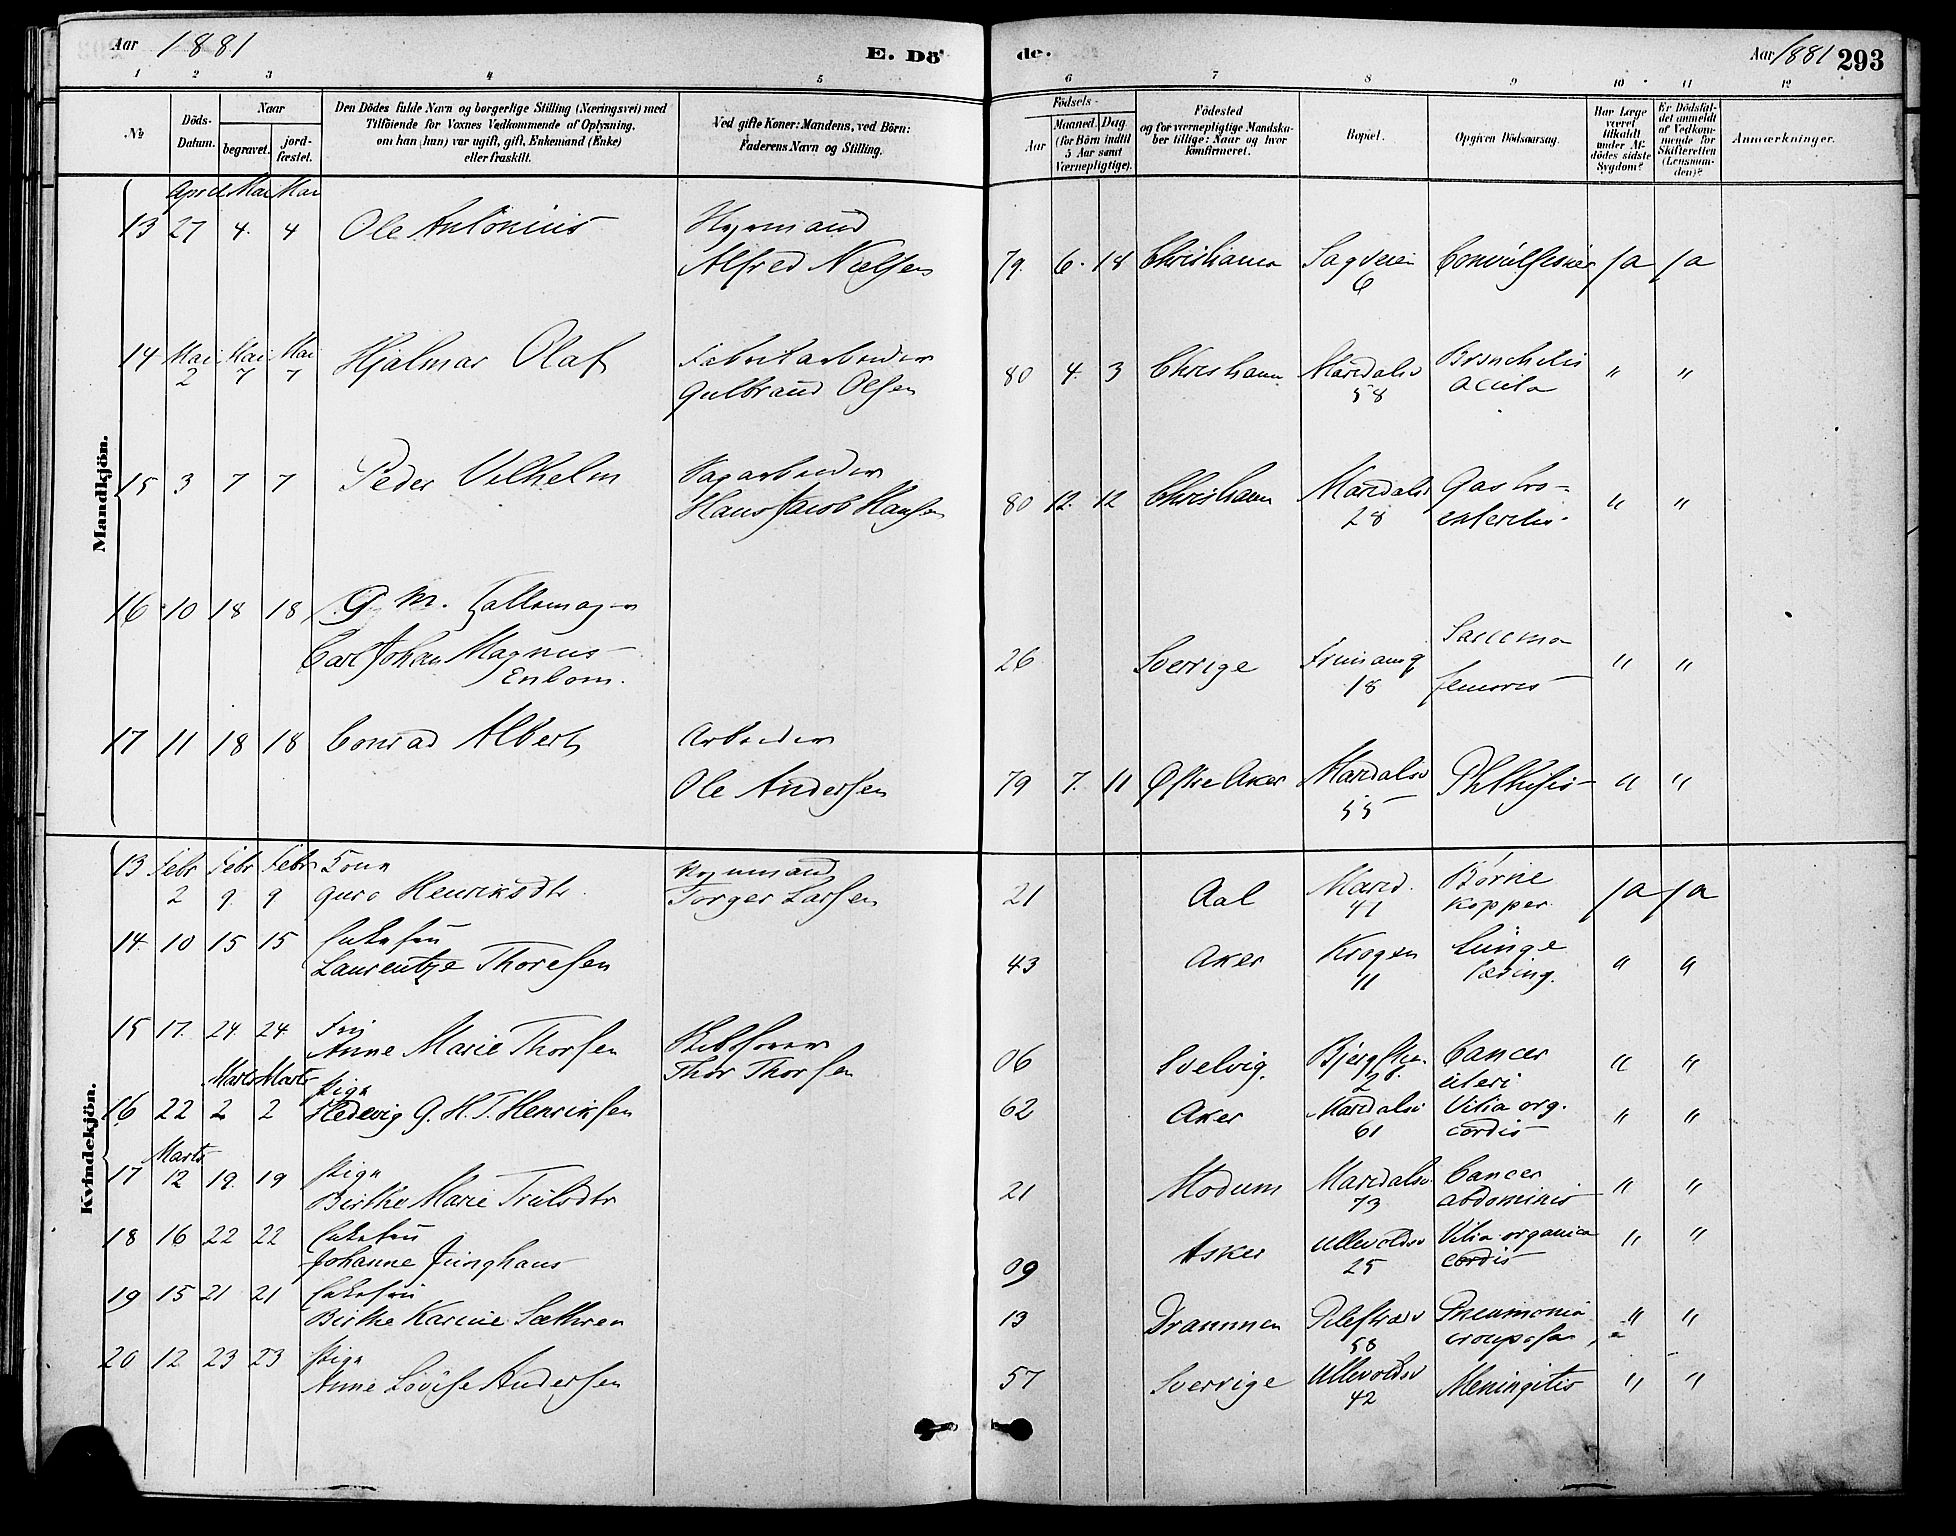 Aar 1881
E. Dö
de.
Aar 1881 293
1 2 3 4 5 6 7 8 9 10 11 12
No
Döds-
Datum.
Naar
begravet.
jord-
fæstet.
Den Dödes fulde Navn og borgerlige Stilling (Næringsvei) med
Tilföiende for Voxnes Vedkommende af Oplysning,
om han (hun) var ugift, gift, Enkemand (Enke)
eller fraskilt.
Ved gifte Koner: Mandens, ved Börn:
Faderens Navn og Stilling.
Födsels-
Aar
Maaned. Dag
(for Börn indtil
5 Aar samt
Værnepligtige).
Födested
og for værnepligtige Mandska-
ber tillige: Naar og hvor
konfirmeret.
Bopæl.
Opgiven Dödsaarsag.
Har Læge
været
tilkaldt
under Af-
dödes sidste
Sygdom?
Er Dödsfal-
det anmeldt
af Vedkom-
mende for
Skifteretten
(Lensman-
den)?
Anmærkninger.
Mandkjön.
April Mai Mai
13 27 4. 4 Ole Antonius
Alfred Nielsen
79. 6. 18 Christiania Sagveien 6 Convulsioner Ja Ja
14 Mai 2 Mai 7 Mai 7 Hjalmar Olaf Fabrikarbeider
Gulbrand Olsen
80 4. 3 Christiania Maridalsv 58 Bronchitis acuta " "
15 3 7 7 Peder Vilhelm
Hans Jacob Hansen
80 12. 12 Christiania Maridalsv 28 Gastro-
enteritis. " "
16 10 18 18
Carl Johan Magnus
Enbom.
26 Sverrige 18
femoris " "
17 11 18 18 Conrad Albert Arbeider
Ole Andersen
79 7. 11 Østre Aker Maridalsv 55 Phthisis " "
Kvindekjön.
13 Febr 2 Febr 9 Febr 9
Guro Henriksdtr.
Torger Larsen
21 Aal Marid. 41 Børne
kopper. Ja Ja
14 10 15 15 Enkefru
Laurentze Thoresen
43 Aker Krogen 11 Lunge
tæring. " "
15 17. 24. 24
Anne Marie Thorsen
Thor Thorsen
06 Svelvig. 28. Cancer
uteri " "
Marts Marts
16 22 2 2 Pige
Hedevig G. H. T. Henriksen
62 Aker Maridalsv 61 Vitia org.
cordis " "
Marts
17 12 19. 19 Pige
Birthe Marie Trulsdtr
21 Modum Maridalsv 73 Cancer
abdominis " "
18 16 22 22 Enkefru
Johanne Junghans
09 Asker Ullevoldsv 25 Vitia organica
cordis " "
19 15 21 21 Enkefru
Birthe Karine Sæthren
13 Drammen Pilestræd 58 Pneumonia
crouposa " "
20 12 23 23 Pige
Anne Lovise Andersen
57 Sverrige Ullevoldsv 42 Meningitis " "